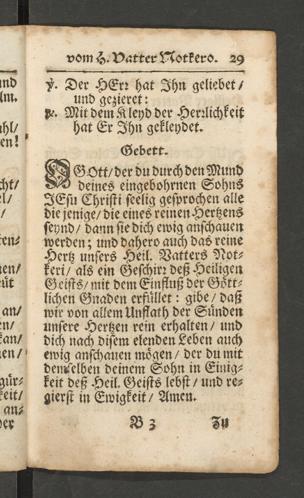 vom H. Vatter Notkero. 29
℣. Der HErꝛ hat Ihn geliebet /
und gezieret:
℟. Mit dem Kleyd der Herꝛlichkeit
hat Er Ihn gekleydet.
Gebett.
O GOtt / der du durch den Mund
deines eingebohrnen Sohns
JEsu Christi seelig gesprochen alle
die jenige / die eines reinen Hertzens
seynd / dann sie dich ewig anschauen
werden; und dahero auch das reine
Hertz unsers Heil. Vatters Not-
keri / als ein Geschirꝛ deß Heiligen
Geists / mit dem Einfluß der Gött-
lichen Gnaden erfüllet: gibe / daß
wir von allem Unflath der Sünden
unsere Hertzen rein erhalten / und
dich nach disem elenden Leben auch
ewig anschauen mögen / der du mit
demselben deinem Sohn in Einig-
keit deß Heil. Geists lebst / und re-
gierst in Ewigkeit / Amen.
B 3 Zu